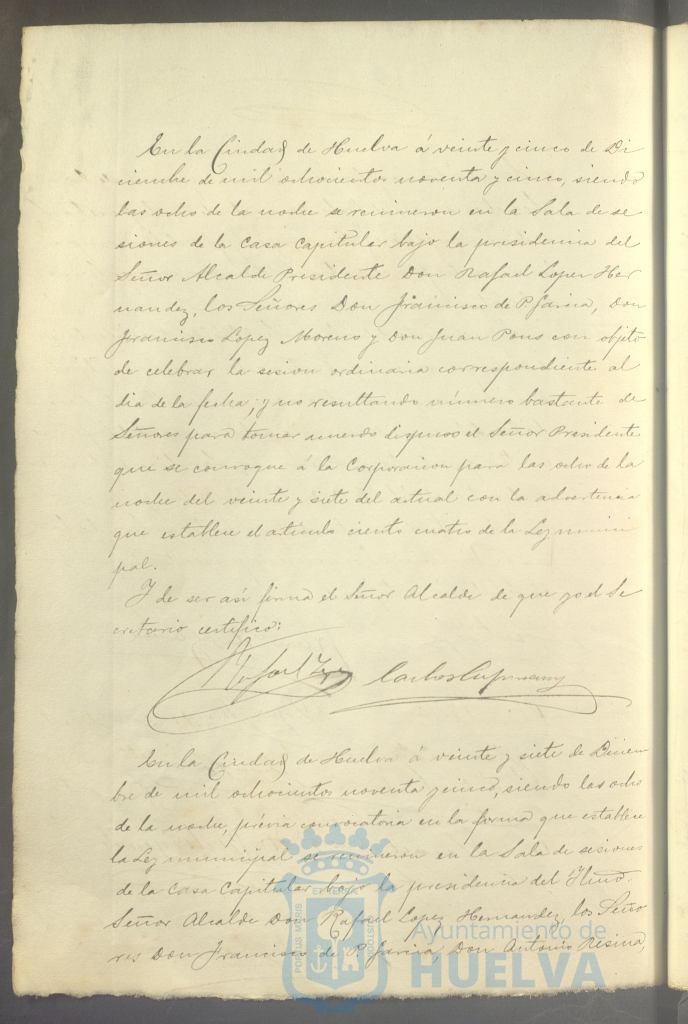 En la Ciudad de Huelva á veinte y cinco de Di
ciembre de mil ochocientos noventa y cinco, siendo
las ocho de la noche se reunieron en la Sala de se
siones de la Casa Capitular bajo la presidencia del
Señor Alcalde Presidente Don Rafael Lopez Her
nandez, los Señores Don Francisco de P. Garcia, Don
Francisco Lopez Moreno y Don Juan Pons con objeto
de celebrar la sesion ordinaria correspondiente al
dia de la fecha; y no resultando número bastante de
Señores para tomar acuerdo dispuso el Señor Presidente
que se convoque á la Corporacion para las ocho de la
noche del veinte y siete del actual con la advertencia
que establece el artículo ciento cuatro de la Ley munici
pal.
Y de ser así firma el Señor Alcalde de que yo el Se
cretario certifico:
Rafael Carlos
En la Ciudad de Huelva á veinte y siete de Diciem
bre de mil ochocientos noventa y cinco, siendo las ocho
de la noche, prévia convocatoria en la forma que establece
la Ley municipal se reunieron en la Sala de sesiones
de la Casa Capitular bajo la presidencia del Iltmo.
Señor Alcalde Don Rafael Lopez Hernandez, los Seño
res Don Francisco de P. Garcia, Don Antonio Resina,
PORTUS MARIS ET TERRÆ CUSTODIA
Ayuntamiento de
HUELVA